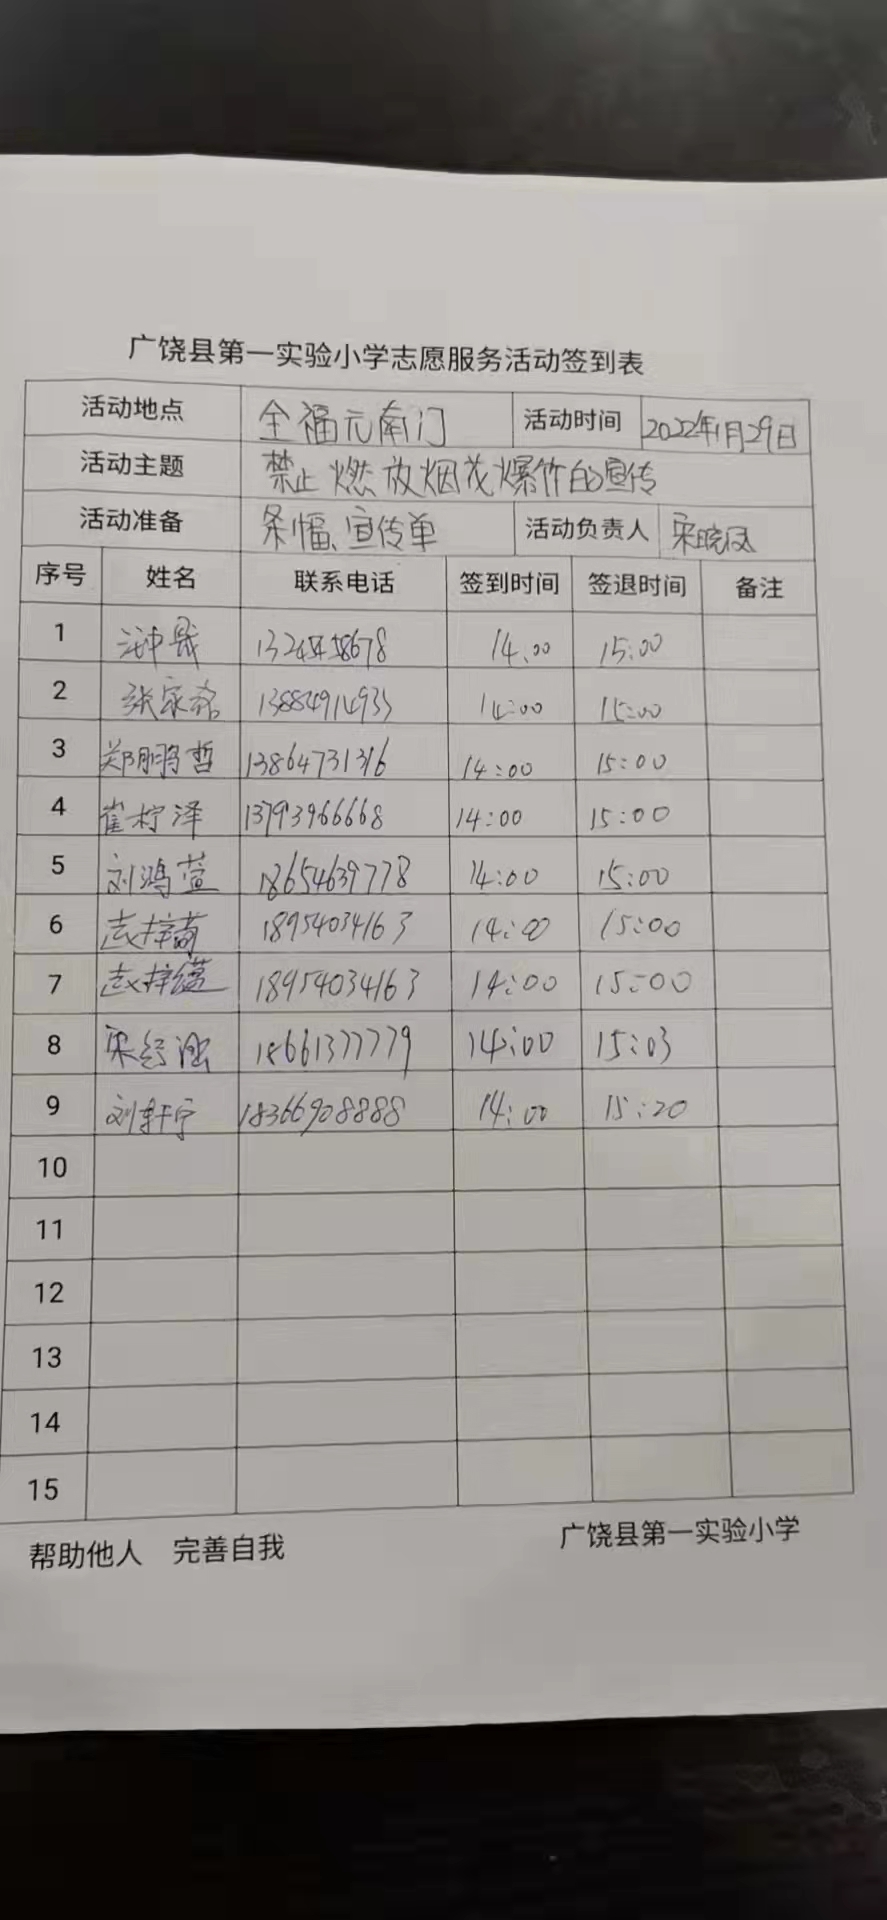 广饶县第一实验小学志愿服务活动签到表
活动地点 全福元南门 活动时间 2022年1月29日
活动主题 禁止燃放烟花爆竹的宣传
活动准备 条幅、宣传单 活动负责人 宋晓凤
序号 姓名 联系电话 签到时间 签退时间 备注
1 14:00 15:00
2 张家铭 13884914933 14:00 15:00
3 郑鹏哲 13864731316 14:00 15:00
4 崔柠泽 13793966668 14:00 15:00
5 刘鸿萱 18654639778 14:00 15:00
6 18954034163 14:00 15:00
7 18954034163 14:00 15:00
8 18661377779 14:00 15:03
9 刘轩宁 18366908888 14:00 15:20
10
11
12
13
14
15
帮助他人 完善自我 广饶县第一实验小学